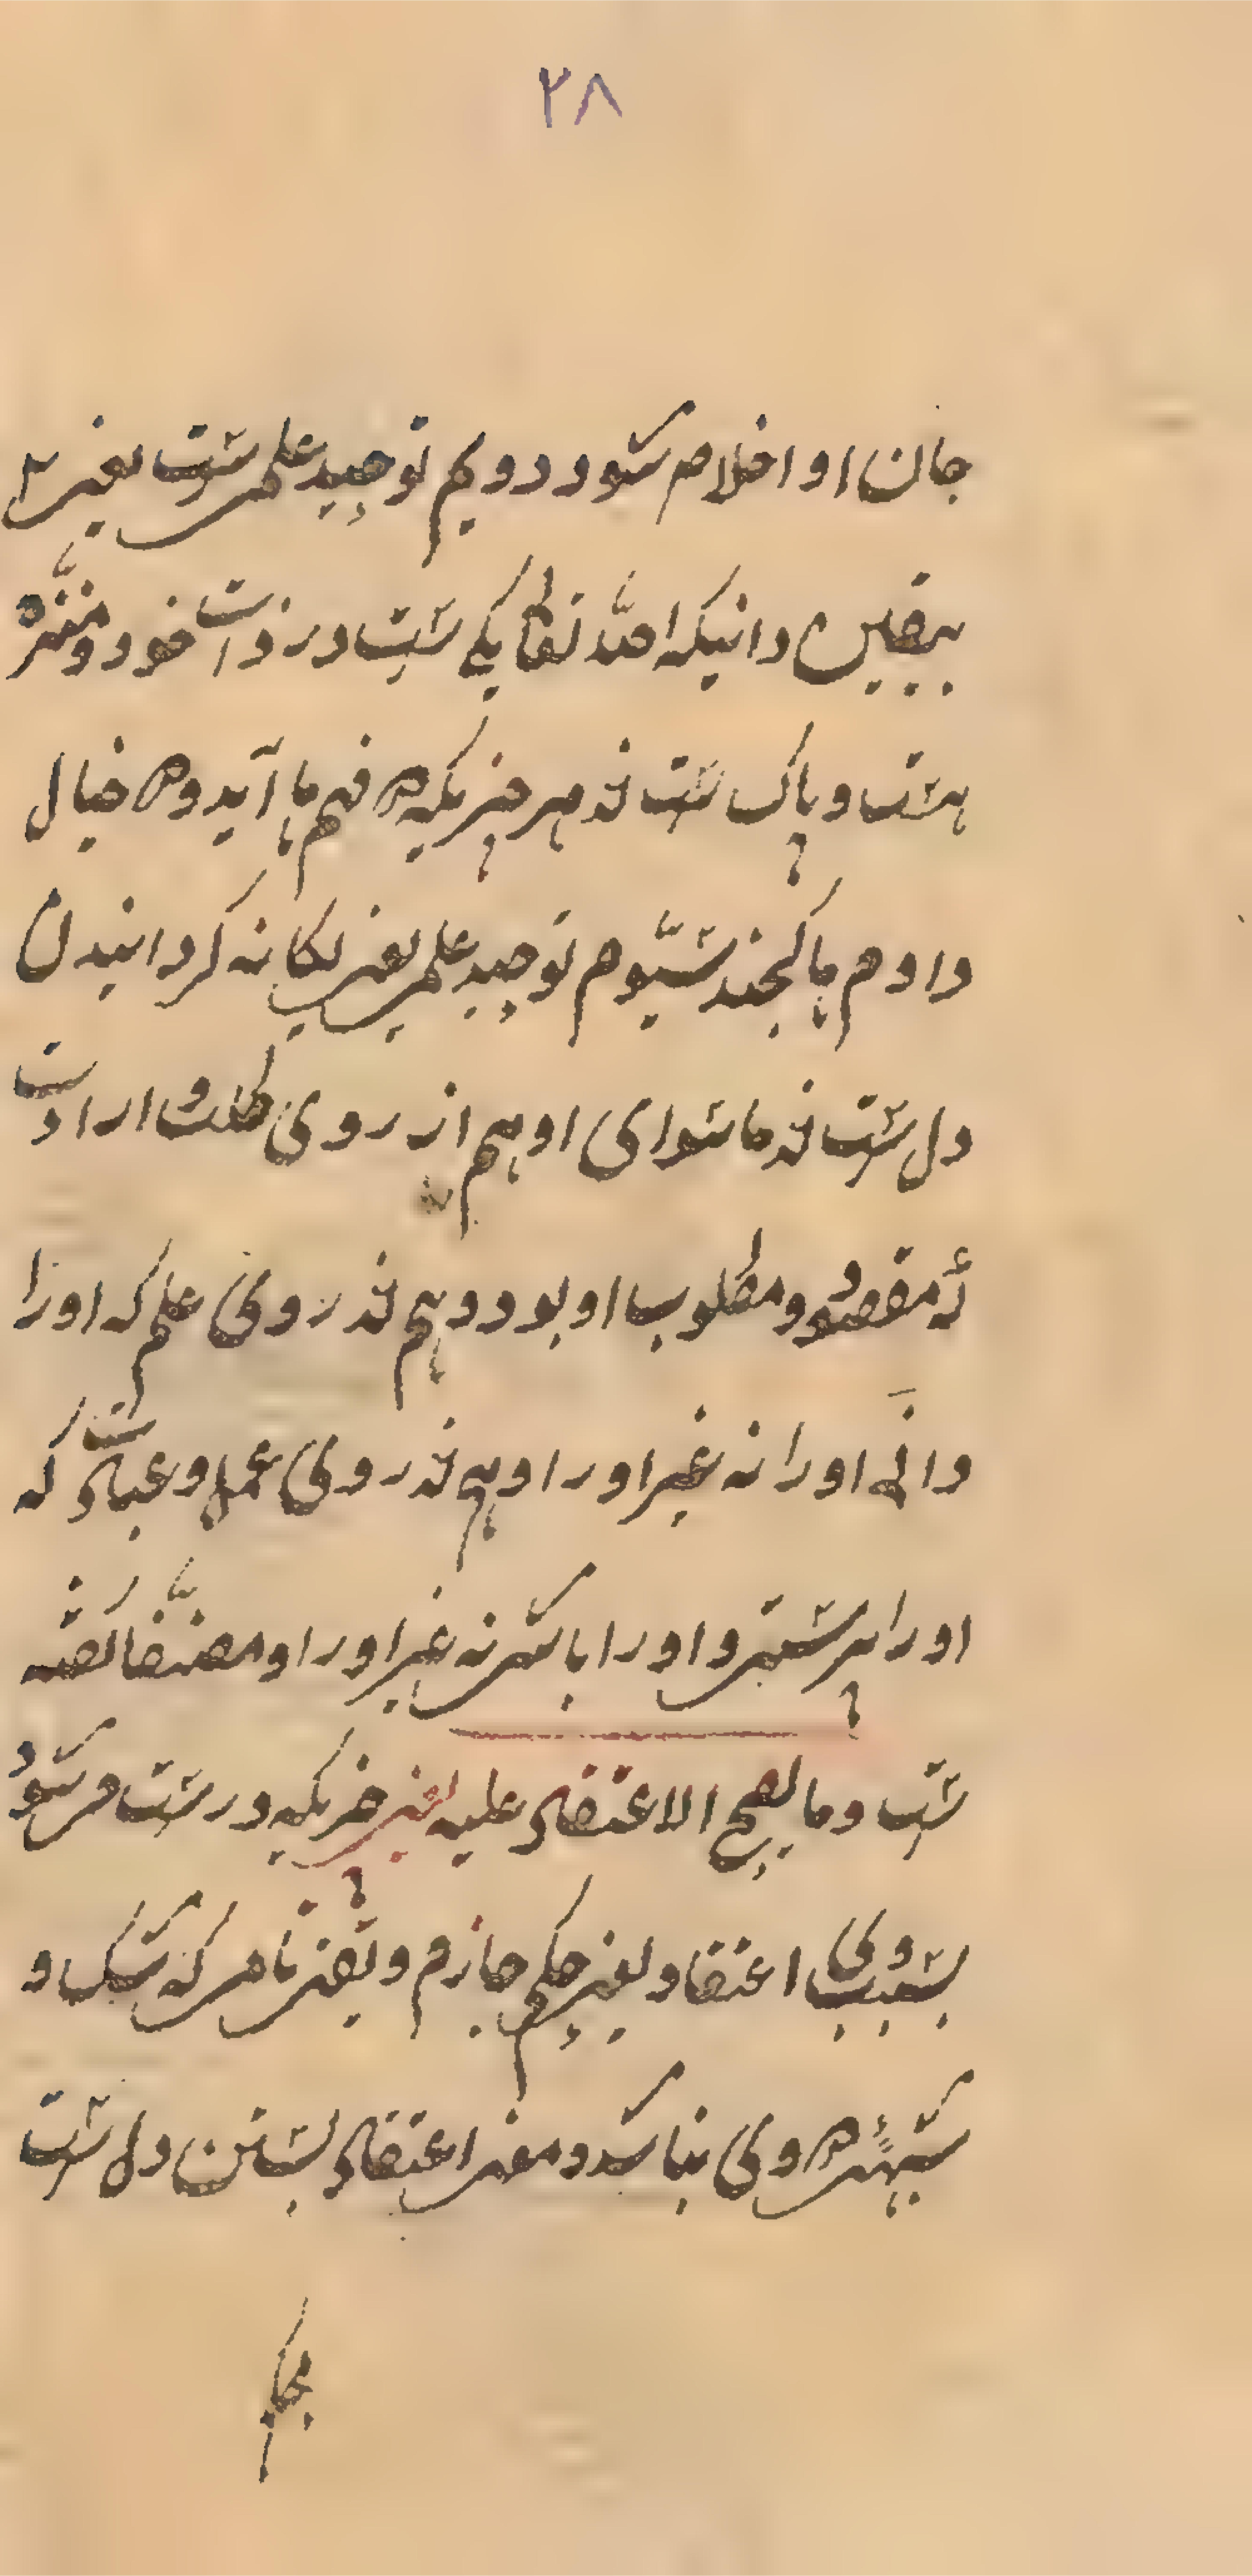 ۲۸
جان او اخلاص شود دویم توحید علمی ست یعنی
بیقین دانیکه الله تعالی یکی ست در ذات خود و منزه
هست و پاک ست از هر چیزیکه در فهم ما آید و در خیال
و او هم ما گنجند سیوم توحید علمی یعنی یکانه کردانیدن
دل ست از ماسوای او هم از روی طلب و ارادت
که مقصود و مطلوب او بود و هم از روی علم که او را
دانی او را نه غیر او را و هم از روی عمل و عبادت که
او را پرستی و او را باشی نه غیر او را و
ست وما یصح الاعتقاد علیه یعنی چیزیکه درست می شود
بسبب وی اعتقاد یعنی حکم جازم و یقینی که شک و
شبهه در وی نباشد و معنی اعتقاد بستن دل ست
بحکم